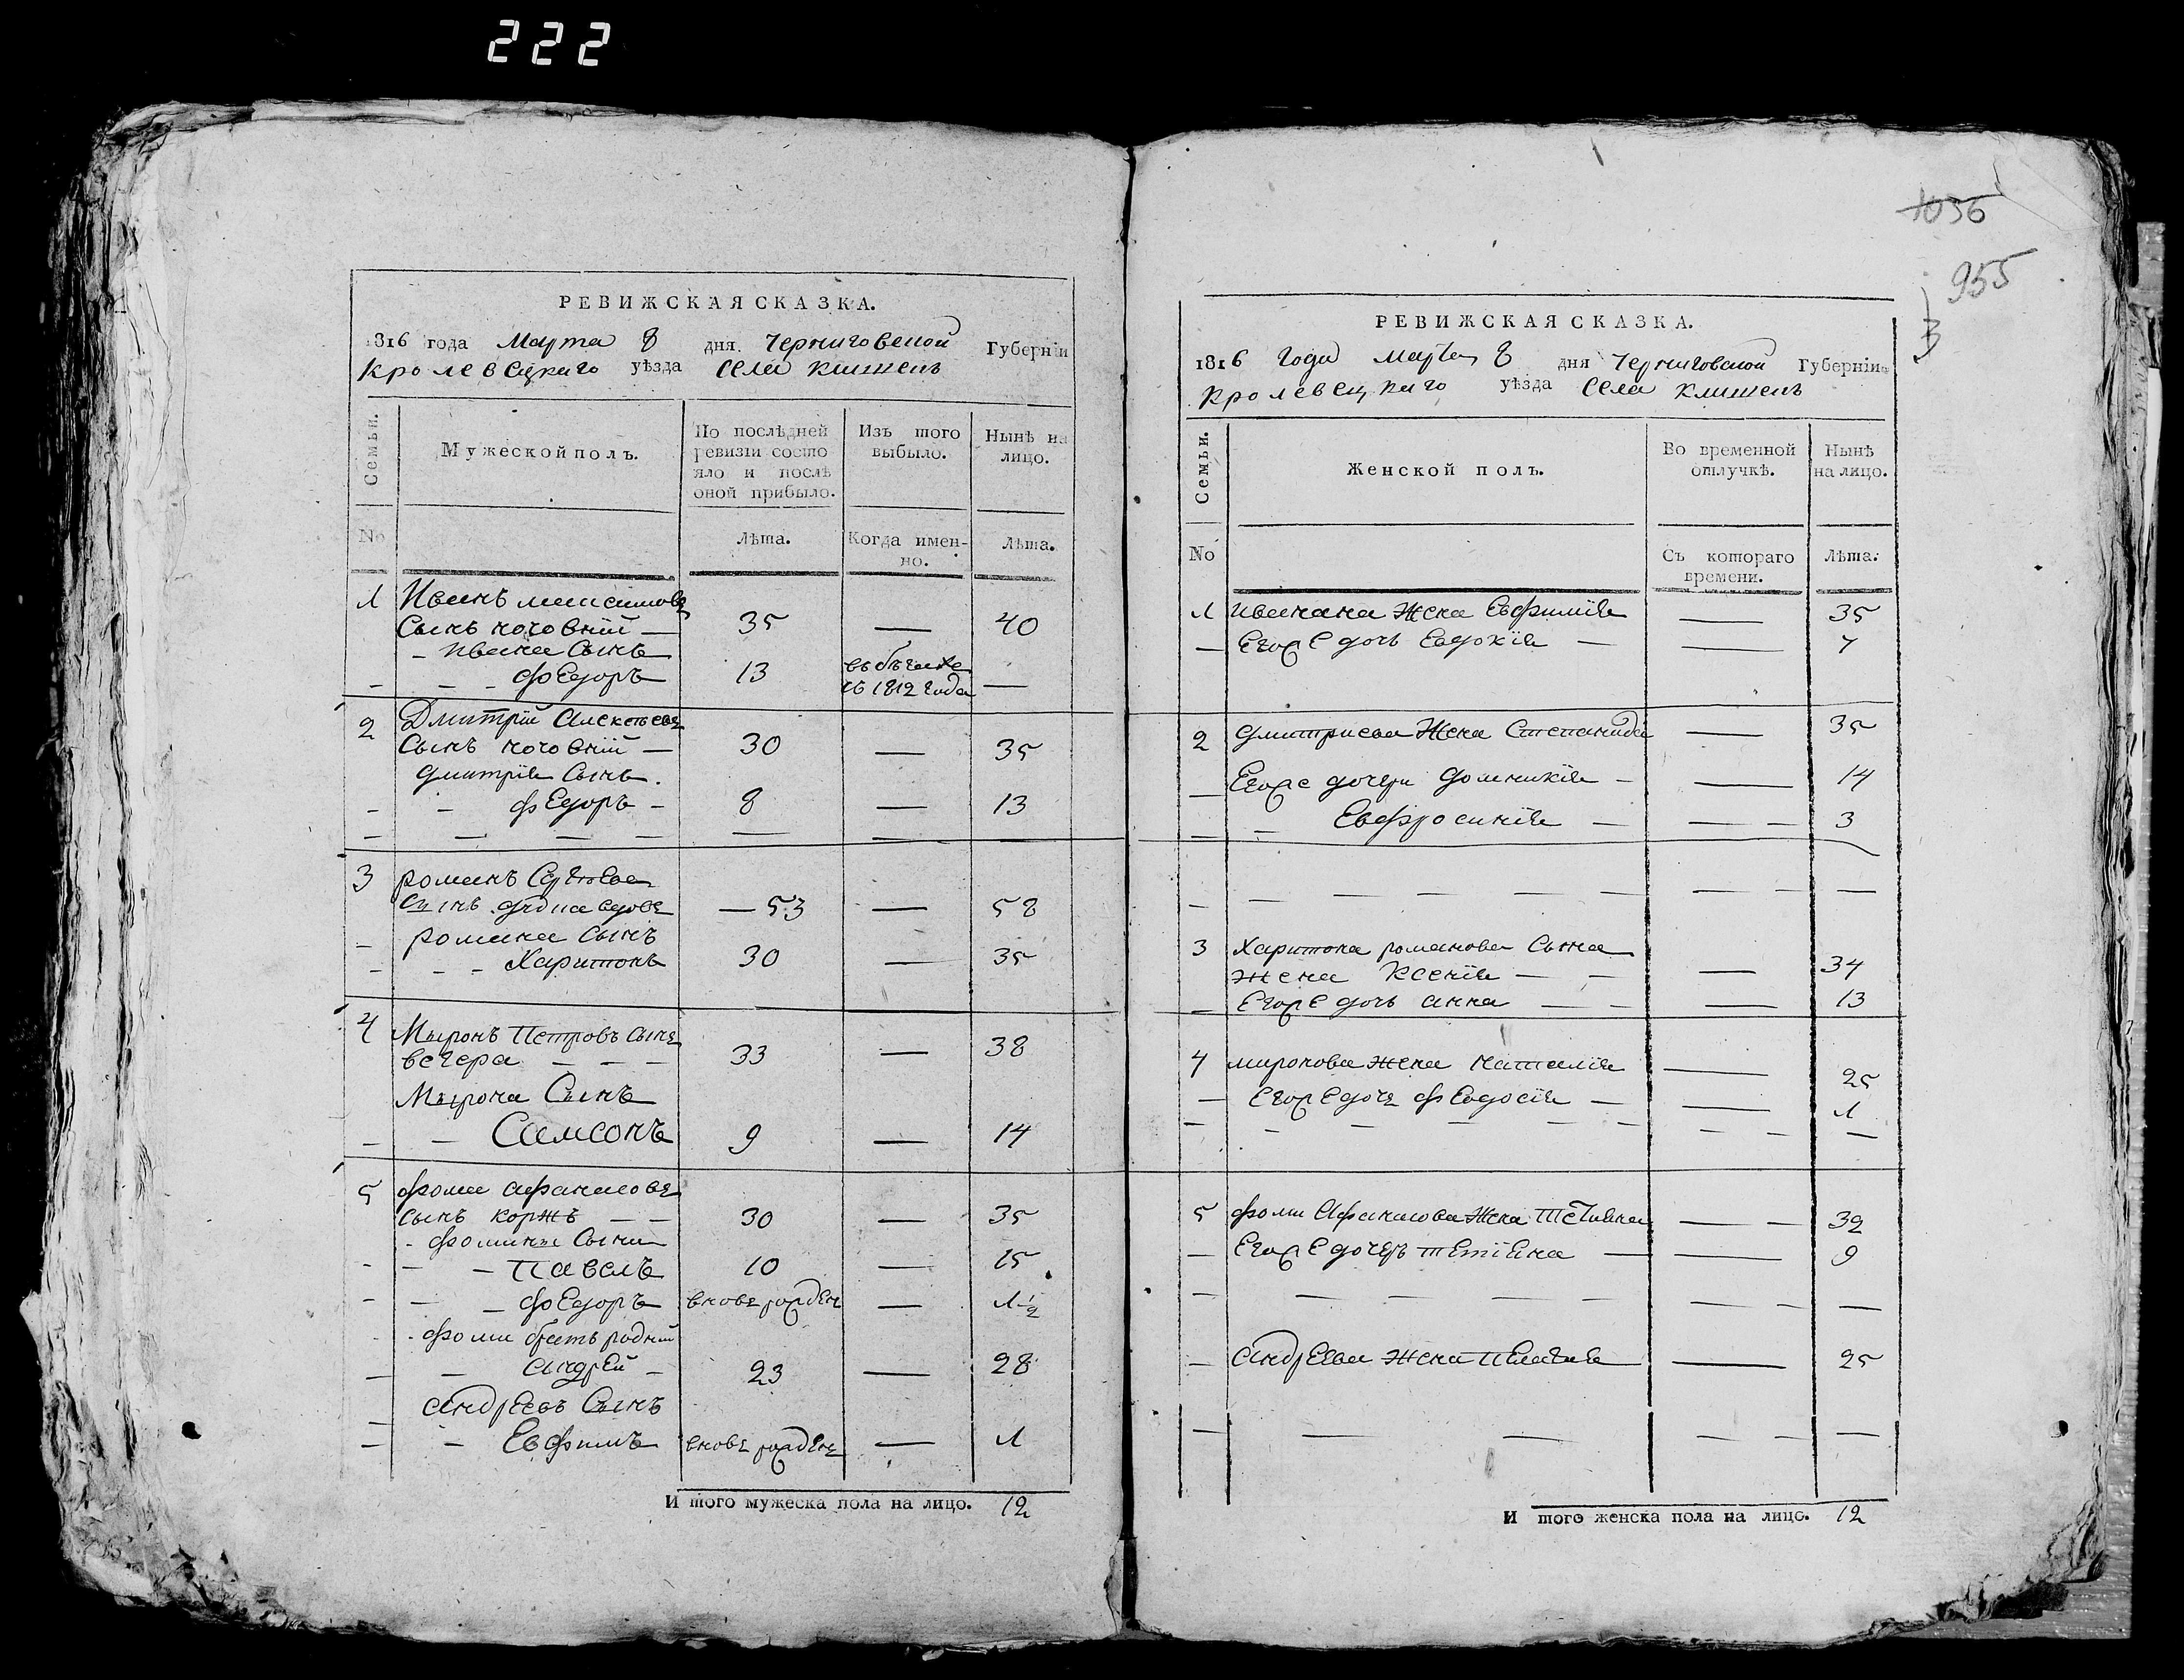 222
1056
955
3
РЕВИЖСКАЯ СКАЗКА.
1816 года Марта 8 дня Черниговской Губерніи
Кролевецкаго уѣзда Села Клишекъ
Семьи.
Мужеской полъ.
По послѣдней ревизіи состо
яло и послѣ
оной прибыло.
Изъ того выбыло.
Нынѣ на лицо.
No
Лѣта.
Когда имен-
но.
Лѣта.
1 Иванъ
Сынъ — 35 — 40
Ивана Сынъ
Федоръ 13 въ бѣгахъ съ 1812 года —
2 Дмитрій Алексѣевъ
Сынъ — 30 — 35
Дмитрія Сынъ
Федоръ 8 — 13
3 Романъ
Сынъ — 53 — 58
Романа Сынъ
Харитонъ 30 — 35
4 Мыронъ Петровъ Сынъ
вечера 33 — 38
Мырона Сынъ
Самсонъ 9 — 14
5 Фома Афанасовъ
Сынъ коржъ 30 — 35
Фомины Сыны
Павелъ 10 — 15
Федоръ вновь рожденъ — 1 1/2
Фомы братъ родный
Андрей 23 — 28
Андреевъ Сынъ
Евфимъ вновь рожденъ — 1
И того мужеска пола на лицо. 12
РЕВИЖСКАЯ СКАЗКА.
1816 Года Марта 8 дня Черниговской Губерніи
Кролевецкаго уѣзда Села Клишекъ
Семьи.
Женской полъ.
Во временной отлучкѣ.
Нынѣ на лицо.
No
Съ котораго
времени.
Лѣта.
1 Ивана жена Евфимія — 35
Егоже дочь Евдокія — 7
2 Дмитриева Жена Степанида — 35
Егоже дочери Домникія — 14
Евфросинія — 3
3 Харитона романова Сына
жена Ксенія — 34
Егоже дочь анна — 13
4 миронова жена наталія — 25
Егоже дочь Феодосія — 1
5 Фомы Афанасова Жена Тетіяна — 32
Егоже дочерь тетіяна — 9
Андреева жена Пелагія — 25
И того женска пола на лицо. 12